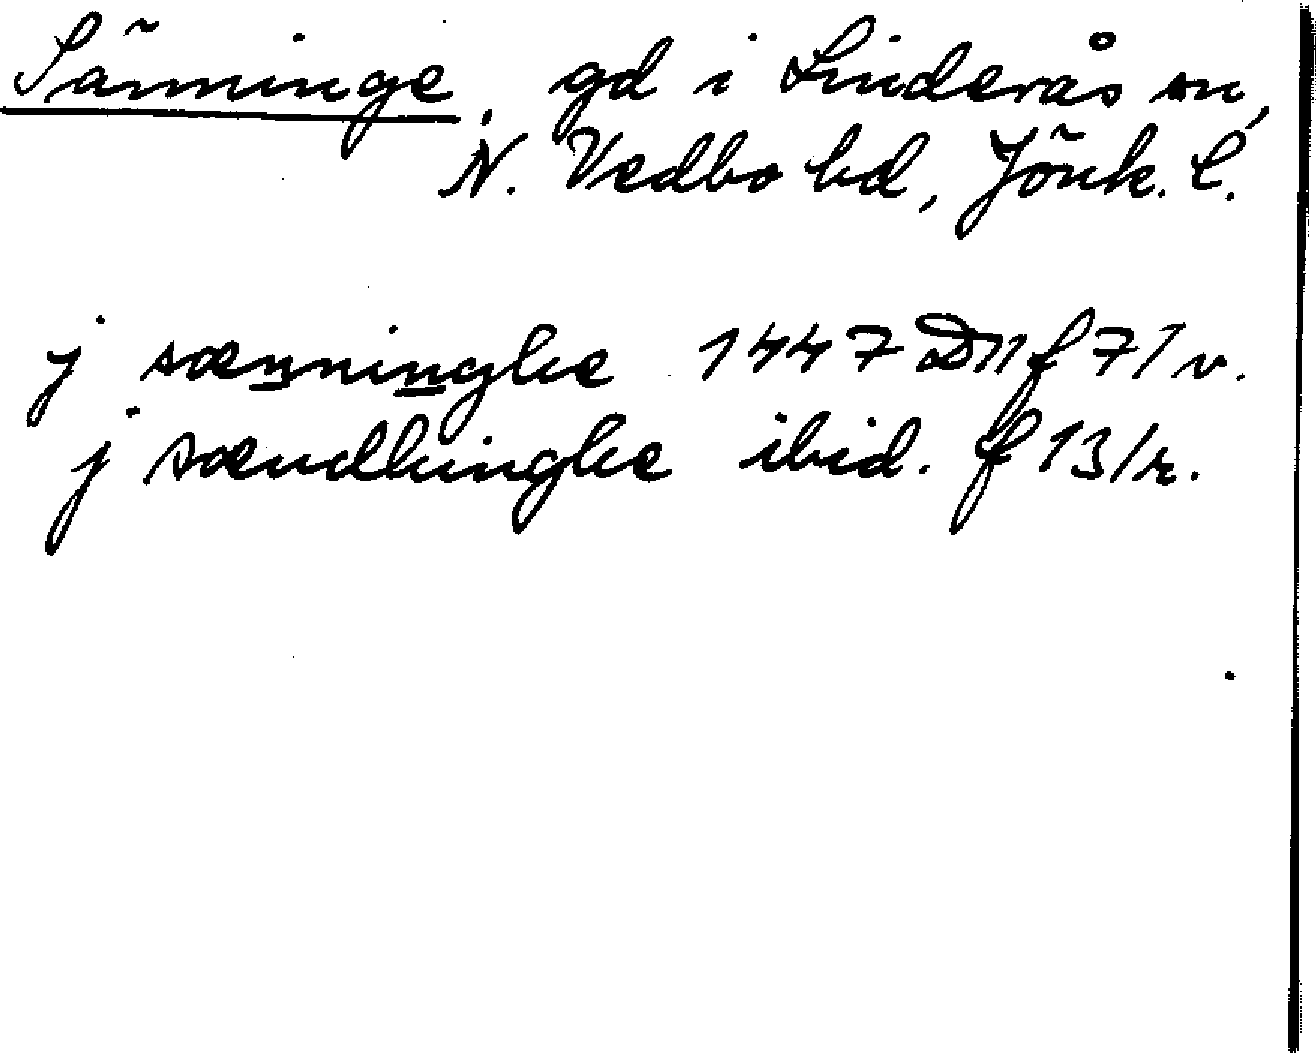 Sänninge, gd i Linderås sn,
N. Vedbo hd, Jönk. l.
j sænninghe 1447 f 71 v.
j sændhinghe ibid. f 131 r.